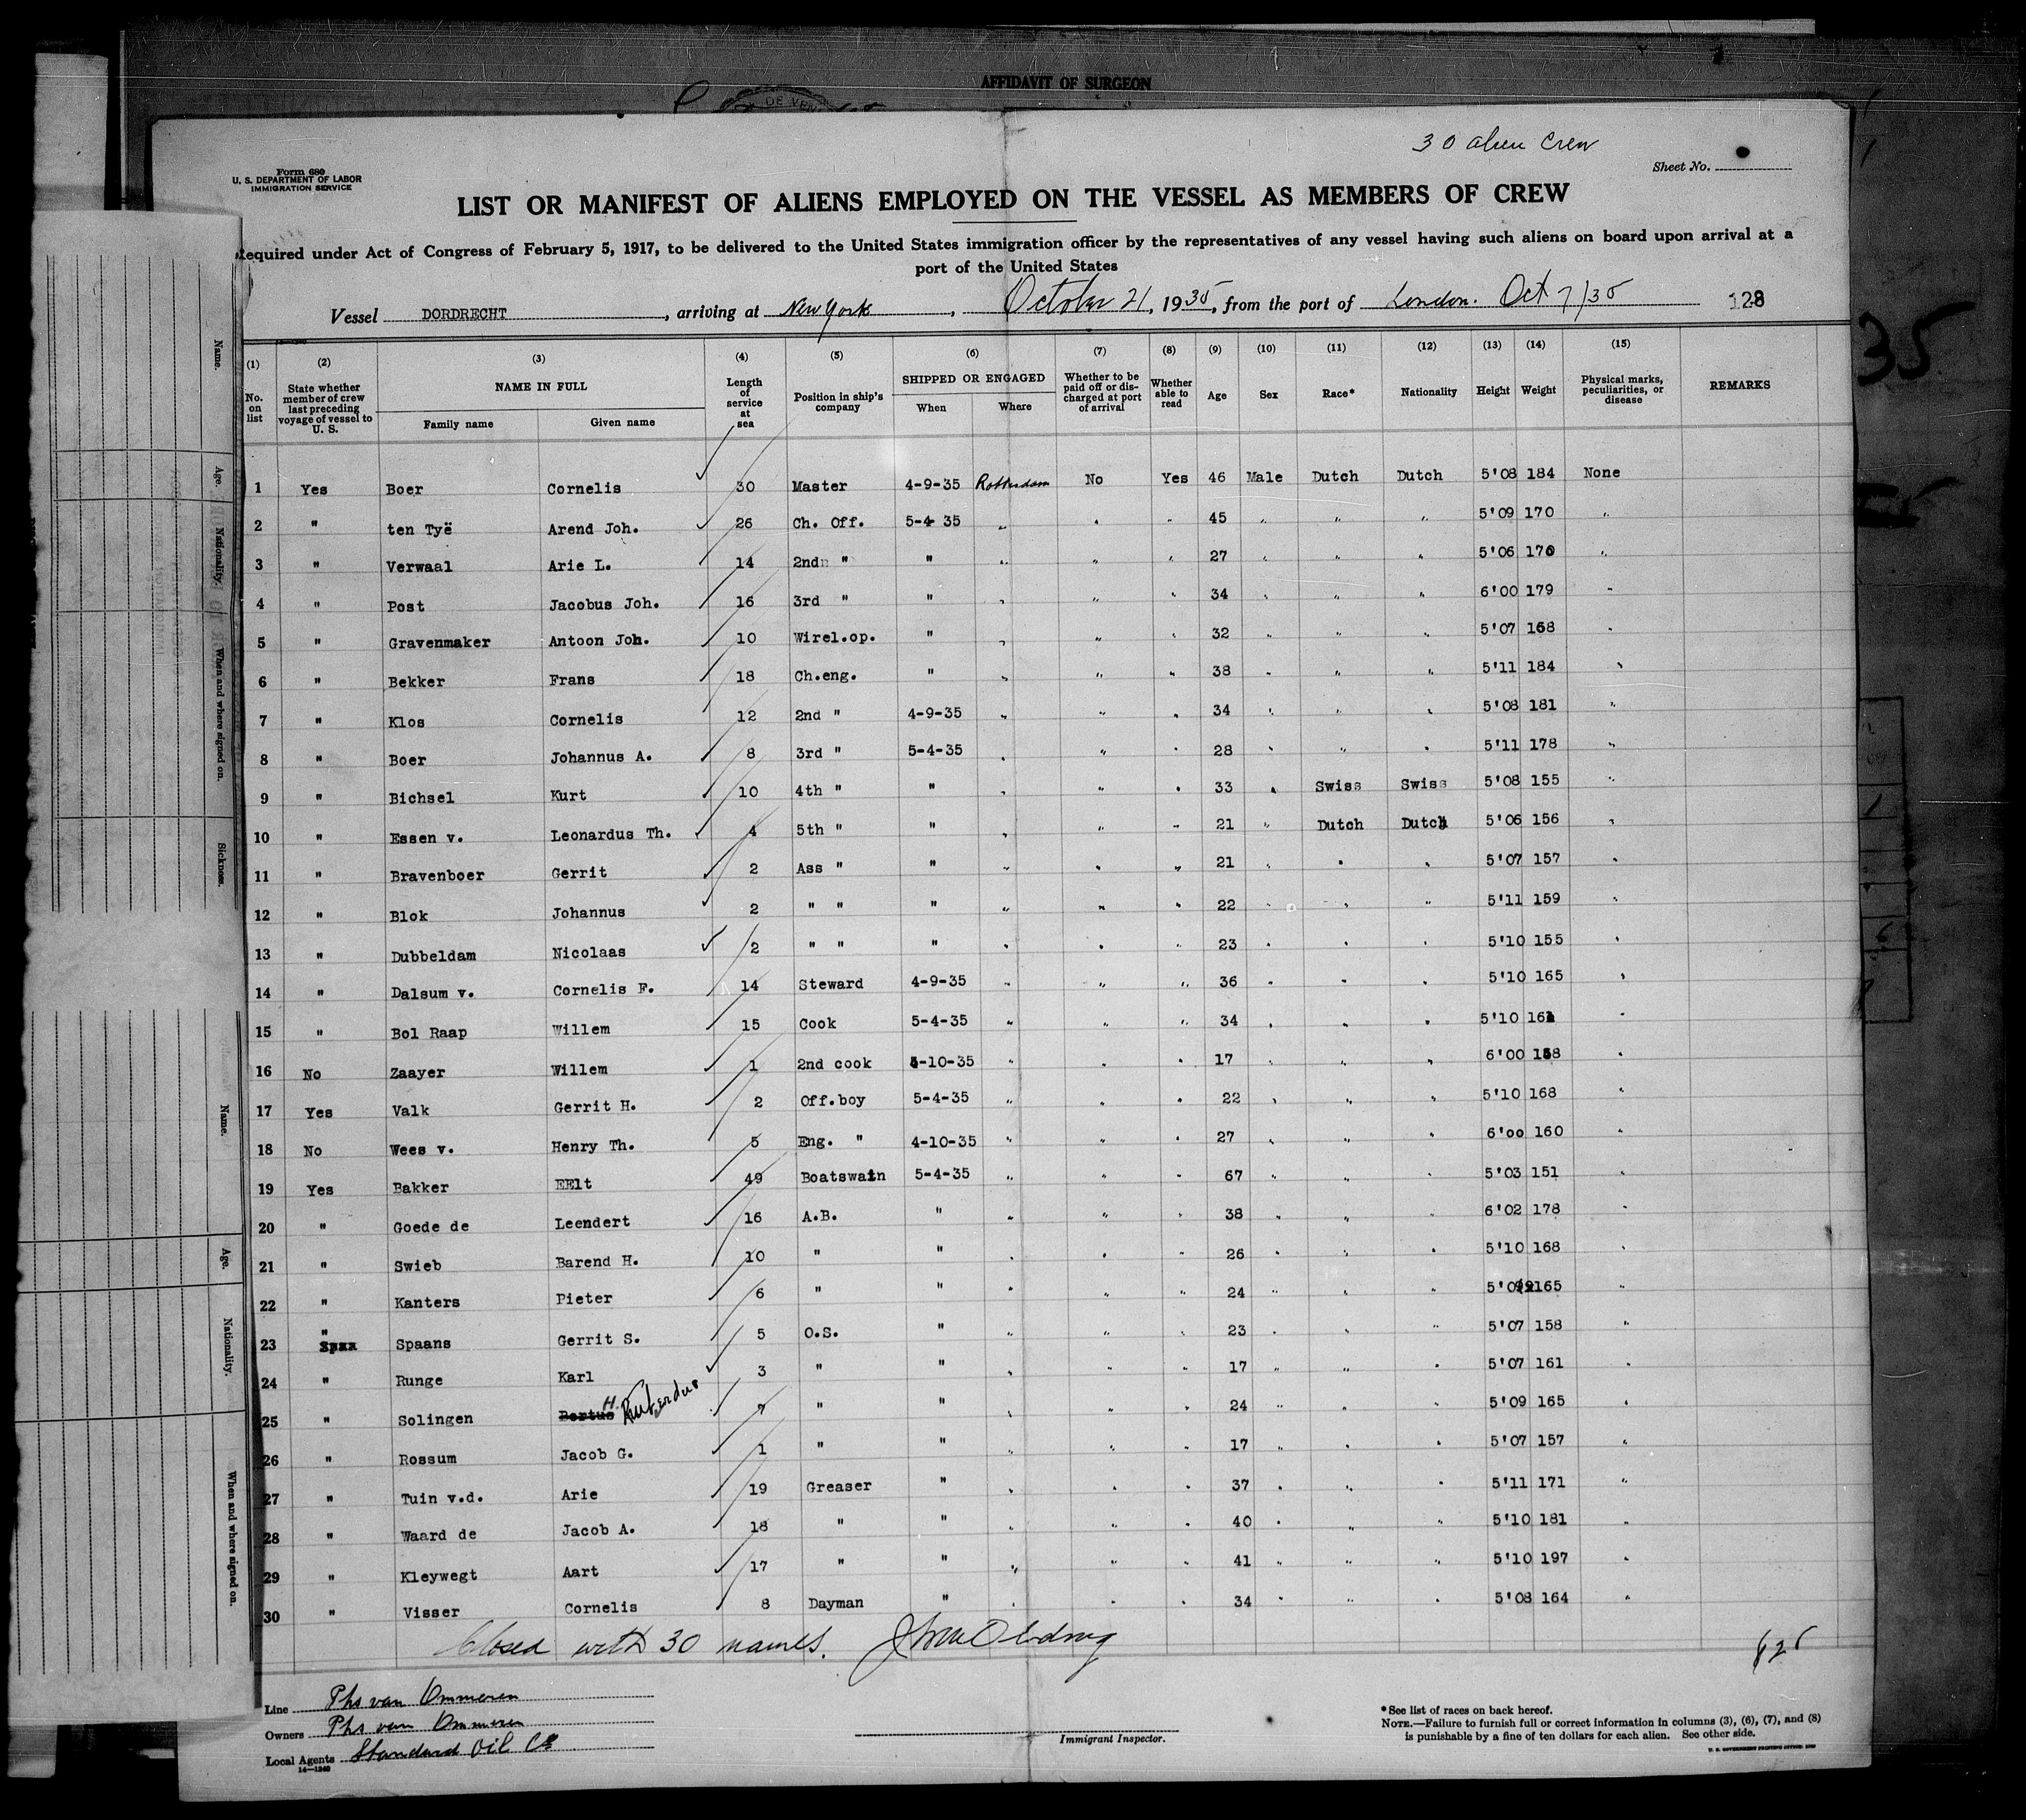 AFFIDAVIT OF SURGEON
DE VEN
30 alien Crew
Form 680
U. S. DEPARTMENT OF LABOR
IMMIGRATION SERVICE
Sheet No.
LIST OR MANIFEST OF ALIENS EMPLOYED ON THE VESSEL AS MEMBERS OF CREW
Required under Act of Congress of February 5, 1917, to be delivered to the United States immigration officer by the representatives of any vessel having such aliens on board upon arrival at a
port of the United States
Vessel DORDRECHT, arriving at New York, October 21, 1935, from the port of London. Oct 7/35 128
35
(1) (2) (3) (4) (5) (6) (7) (8) (9) (10) (11) (12) (13) (14) (15)
No. on list State whether member of crew last preceding voyage of vessel to U. S. NAME IN FULL Family name Given name Length of service at sea Position in ship's company SHIPPED OR ENGAGED When Where Whether to be paid off or discharged at port of arrival Whether able to read Age Sex Race* Nationality Height Weight Physical marks, peculiarities, or disease REMARKS
1 Yes Boer Cornelis 30 Master 4-9-35 Rotterdam No Yes 46 Male Dutch Dutch 5'08 184 None
2 " ten Tyë Arend Joh. 26 Ch. Off. 5-4 35 " " " 45 " " " 5'09 170 "
3 " Verwaal Arie L. 14 2nd " " " " " 27 " " " 5'06 170 "
4 " Post Jacobus Joh. 16 3rd " " " " " 34 " " " 6'00 179 "
5 " Gravenmaker Antoon Joh. 10 Wirel.op. " " " " 32 " " " 5'07 168 "
6 " Bekker Frans 18 Ch.eng. " " " " 38 " " " 5'11 184 "
7 " Klos Cornelis 12 2nd " 4-9-35 " " " 34 " " " 5'08 181 "
8 " Boer Johannus A. 8 3rd " 5-4-35 " " " 28 " " " 5'11 178 "
9 " Bichsel Kurt 10 4th " " " " " 33 " Swiss Swiss 5'08 155 "
10 " Essen v. Leonardus Th. 4 5th " " " " " 21 " Dutch Dutch 5'06 156 "
11 " Bravenboer Gerrit 2 Ass " " " " " 21 " " " 5'07 157 "
12 " Blok Johannus 2 " " " " " " 22 " " " 5'11 159 "
13 " Dubbeldam Nicolaas 2 " " " " " " 23 " " " 5'10 155 "
14 " Dalsum v. Cornelis F. 14 Steward 4-9-35 " " " 36 " " " 5'10 165 "
15 " Bol Raap Willem 15 Cook 5-4-35 " " " 34 " " " 5'10 "
16 No Zaayer Willem 1 2nd cook " " " 17 " " " 6'00 "
17 Yes Valk Gerrit H. 2 Off.boy 5-4-35 " " " 22 " " " 5'10 168 "
18 No Wees v. Henry Th. 5 Eng. " 4-10-35 " " " 27 " " " 6'00 160 "
19 Yes Bakker EElt 49 Boatswain 5-4-35 " " " 67 " " " 5'03 151 "
20 " Goede de Leendert 16 A.B. " " " " 38 " " " 6'02 178 "
21 " Swieb Barend H. 10 " " " " " 26 " " " 5'10 168 "
22 " Kanters Pieter 6 " " " " " 24 " " " 165 "
23 " Spaans Gerrit S. 5 O.S. " " " " 23 " " " 5'07 158 "
24 " Runge Karl 3 " " " " " 17 " " " 5'07 161 "
25 " Solingen Bertus H. 7 " " " " " 24 " " " 5'09 165 "
26 " Rossum Jacob G. 1 " " " " " 17 " " " 5'07 157 "
27 " Tuin v.d. Arie 19 Greaser " " " " 37 " " " 5'11 171 "
28 " Waard de Jacob A. 18 " " " " " 40 " " " 5'10 181 "
29 " Kleywegt Aart 17 " " " " " 41 " " " 5'10 197 "
30 " Visser Cornelis 8 Dayman " " " " 34 " " " 5'08 164 "
Closed with 30 names.
Line Phs van Ommeren
Owners Phs van Ommeren
Local Agents Standard Oil Co
14—1240
Immigrant Inspector.
*See list of races on back hereof.
NOTE.—Failure to furnish full or correct information in columns (3), (6), (7), and (8)
is punishable by a fine of ten dollars for each alien. See other side.
U. S. GOVERNMENT PRINTING OFFICE
Name.
Age.
Nationality.
When and where signed on.
Sickness.
Name.
Age.
Nationality.
When and where signed on.